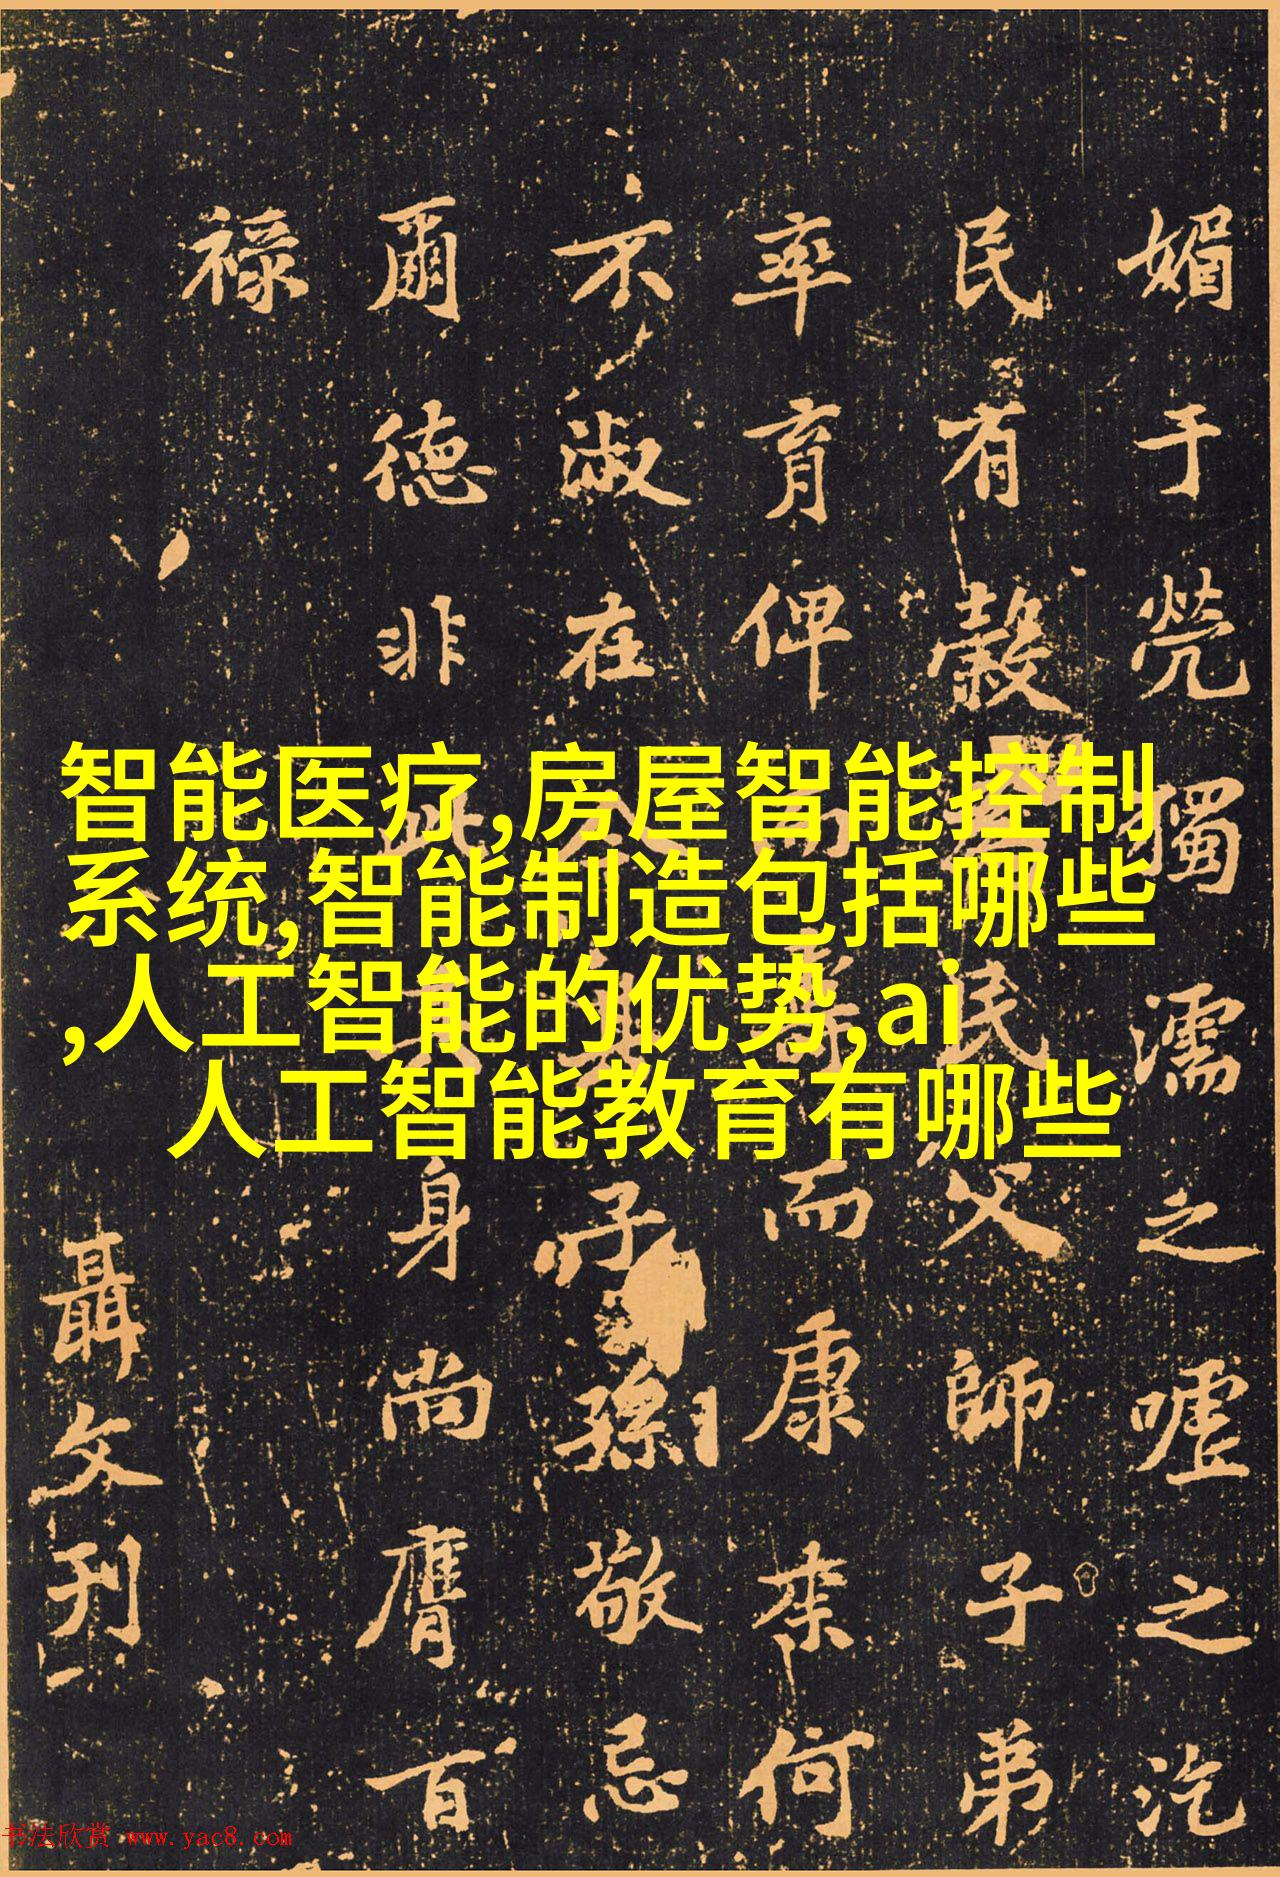 媚于煢獨濡之嘘之汔
民有穀民父師子弟
率育俾而壽而康来何
不淑在今其子孫敬忌
爾德非此云身尚膺百
禄
聶文刊
智能医疗,房屋智能控制
系统,智能制造包括哪些
,人工智能的优势,ai
人工智能教育有哪些
书法欣赏 www.yac8.com